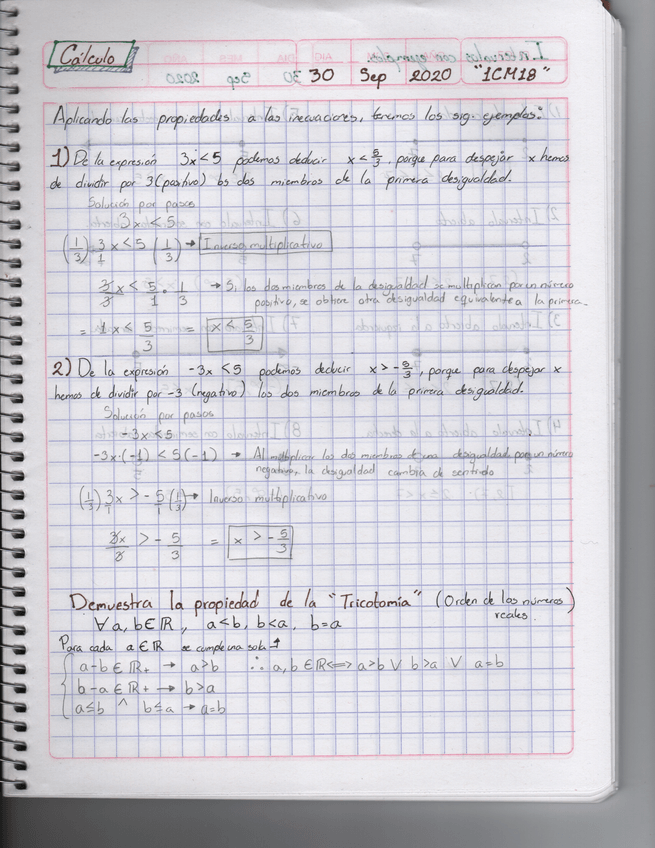 Cálculo
30 Sep 2020 "1CM18"
Aplicando las propiedades a las inecuaciones, tenemos los sig. ejemplos:
1) De la expresión 3x < 5 podemos deducir x < 5/3, porque para despejar x hemos
de dividir por 3 (positivo) los dos miembros de la primera desigualdad.
Solución por pasos
3x < 5
(1/3) 3/1 x < 5 (1/3) → Inverso multiplicativo
3/3 x < 5/1 · 1/3 → Si los dos miembros de la desigualdad se multiplican por un número
positivo, se obtiene otra desigualdad equivalente a la primera.
= 1x < 5/3 = x < 5/3
2) De la expresión -3x < 5 podemos deducir x > -5/3, porque para despejar x
hemos de dividir por -3 (negativo) los dos miembros de la primera desigualdad.
Solución por pasos
-3x < 5
-3x·(-1) < 5(-1) → Al multiplicar los dos miembros de una desigualdad por un número
negativo, la desigualdad cambia de sentido
(1/3) 3/1 x > - 5/1 (1/3) → Inverso multiplicativo
3x/3 > - 5/3 = x > - 5/3
Demuestra la propiedad de la "Tricotomía" (Orden de los números
reales.)
∀ a, b ∈ ℝ, a<b, b<a, b=a
Para cada a ∈ ℝ se cumple una sola ↑
a-b ∈ ℝ+ → a>b ∴ a, b ∈ ℝ ⟺ a>b ∨ b>a ∨ a=b
b-a ∈ ℝ+ → b>a
a≤b ^ b≤a → a=b